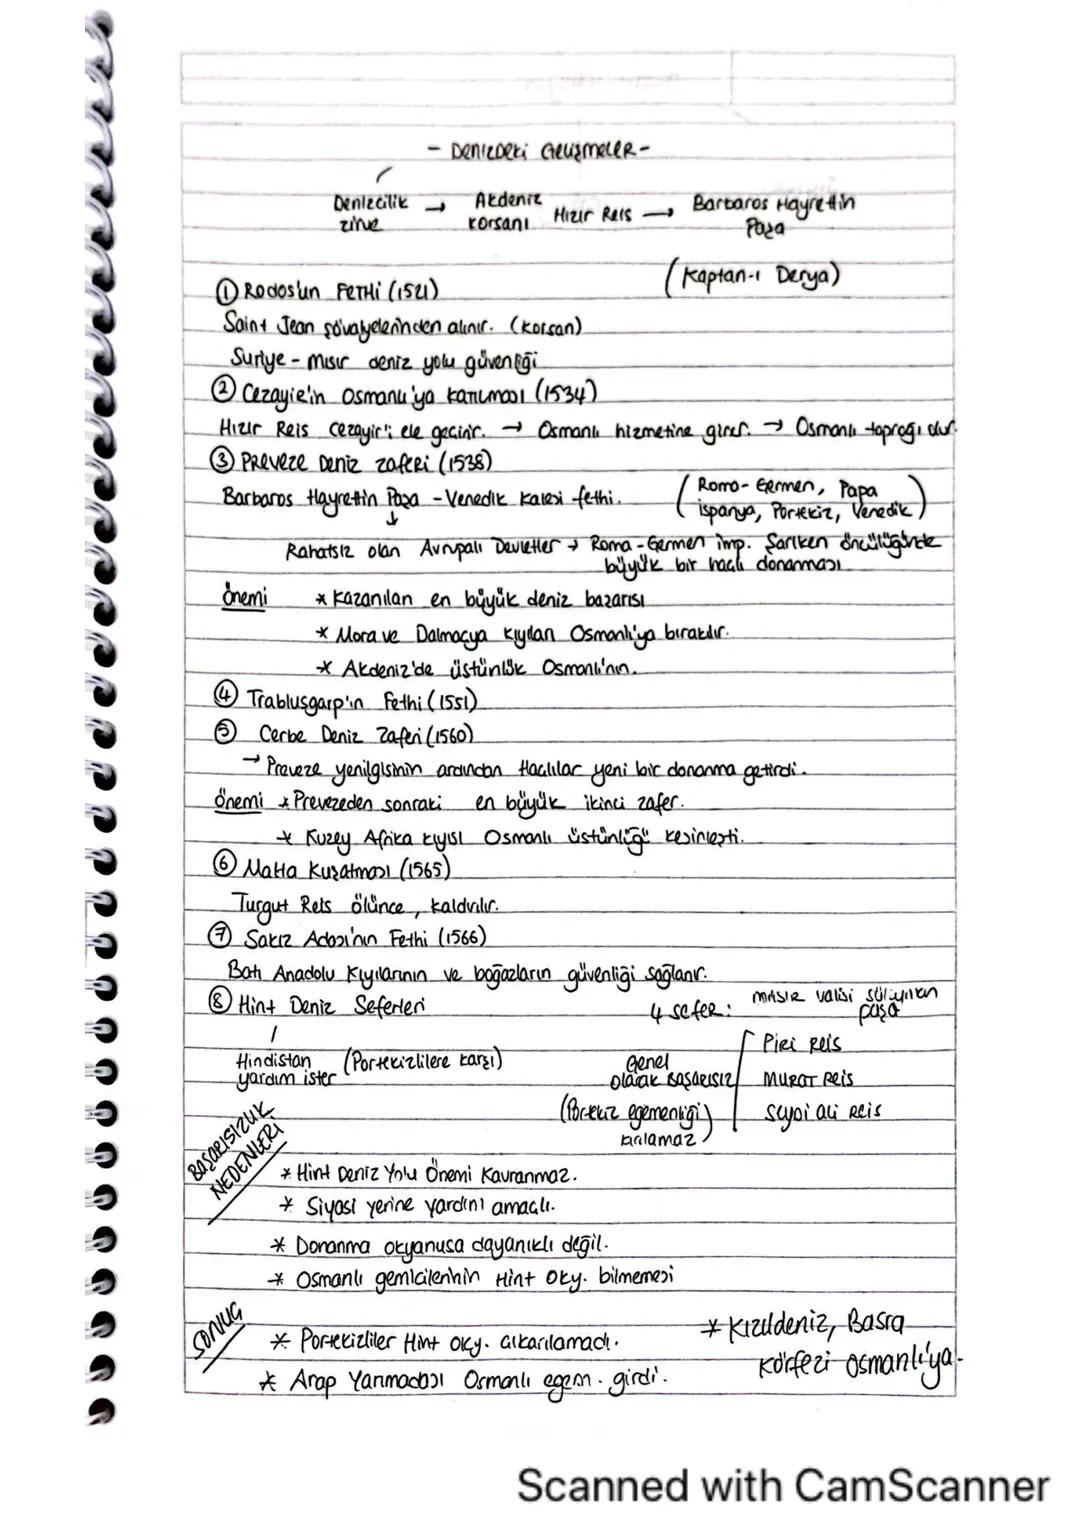 - DENİZDEKİ GELİŞMELER -
Denizcilik zirve → Akdeniz korsanı Hızır Reis → Barbaros Hayrettin Paşa
(Kaptan-ı Derya)
① Rodos'un FETHİ (1521)
Saint Jean şövalyelerinden alınır. (korsan)
Suriye - Mısır deniz yolu güvenliği
② Cezayir'in Osmanlı'ya katılması (1534)
Hızır Reis Cezayir'i ele geçirir. → Osmanlı hizmetine girer. → Osmanlı toprağı olur.
③ PREVEZE DENİZ ZAFERİ (1538)
Barbaros Hayrettin Paşa - Venedik kalesi fethi. (Roma-Germen, Papa
İspanya, Portekiz, Venedik)
Rahatsız olan Avrupalı Devletler → Roma-Germen imp. Şarlken öncülüğünde
büyük bir haçlı donanması
önemi * Kazanılan en büyük deniz başarısı
* Mora ve Dalmaçya kıyıları Osmanlı'ya bırakılır.
* Akdeniz'de üstünlük Osmanlı'nın.
④ Trablusgarp'ın Fethi (1551)
⑤ Cerbe Deniz Zaferi (1560)
→ Preveze yenilgisinin ardından Haçlılar yeni bir donanma getirdi.
önemi * Prevezeden sonraki en büyük ikinci zafer.
* Kuzey Afrika kıyısı Osmanlı üstünlüğü kesinleşti.
⑥ Malta Kuşatması (1565)
Turgut Reis ölünce, kaldırılır.
⑦ Sakız Adası'nın Fethi (1566)
Batı Anadolu Kıyılarının ve boğazların güvenliği sağlanır.
⑧ Hint Deniz Seferleri 4 sefer: MISIR valisi Süleyman paşa
Hindistan yardım ister (Portekizlilere karşı)
Genel olarak BAŞARISIZ
(Portekiz egemenliği kırılamaz)
Piri Reis
MURAT Reis
Seydi Ali Reis
BAŞARISIZLIK NEDENLERİ
* Hint Deniz Yolu Önemi Kavranmaz.
* Siyasi yerine yardım amaçlı.
* Donanma okyanusa dayanıklı değil.
* Osmanlı gemicilerinin Hint Oky. bilmemesi
SONUÇ
* Portekizliler Hint oky. çıkarılamadı.
* Arap Yarımadası Osmanlı egem. girdi.
* Kızıldeniz, Basra
Körfezi Osmanlı'ya.
Scanned with CamScanner